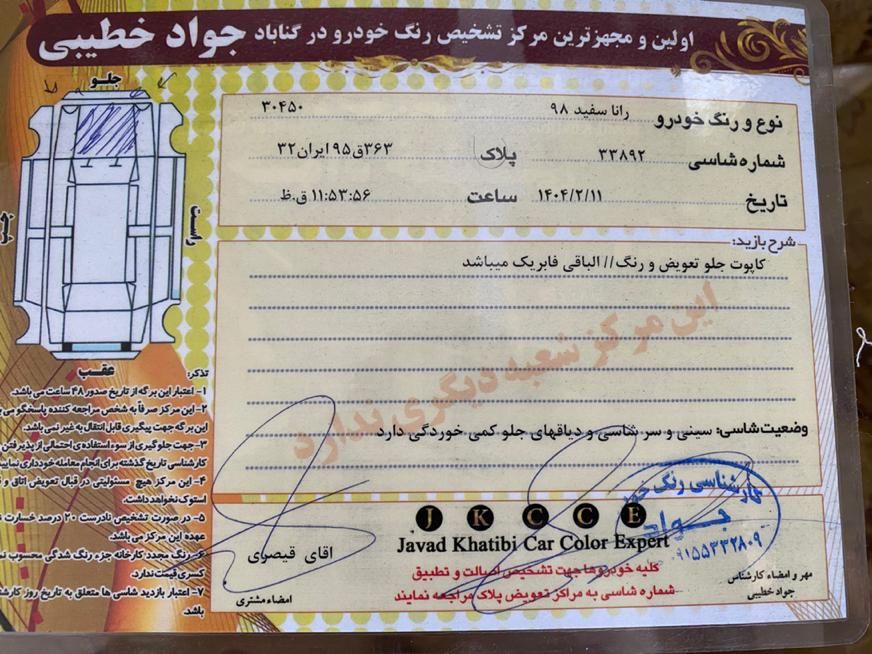 اولین و مجهزترین مرکز تشخیص رنگ خودرو در گناباد جواد خطیبی
جلو
راست
عقب
نوع و رنگ خودرو رانا سفید ۹۸ ۳۰۴۵۰
شماره شاسی ۳۳۸۹۲ پلاک ۳۶۳ق۹۵ ایران۳۲
تاریخ ۱۴۰۴/۲/۱۱ ساعت ۱۱:۵۳:۵۶ ق.ظ
شرح بازید:
کاپوت جلو تعویض و رنگ// الباقی فابریک میباشد
این مرکز شعبه دیگری ندارد
وضعیت شاسی: سینی و سر شاسی و دیاقهای جلو کمی خوردگی دارد
تذکر:
۱- اعتبار این برگه از تاریخ صدور ۴۸ ساعت می باشد.
۲- این مرکز صرفاً به شخص مراجعه کننده پاسخگو می
این برگه جهت پیگیری قابل انتقال به غیر نمی باشد.
۳- جهت جلوگیری از سوء استفاده ی احتمالی از پذیرفتن
کارشناسی تاریخ گذشته برای انجام معامله خودداری نمایید
۴- این مرکز هیچ مسئولیتی در قبال تعویض اتاق و
استوک نخواهد داشت.
۵- در صورت تشخیص نادرست ۲۰ درصد خسارت
عهده این مرکز می باشد.
۶- رنگ مجدد کارخانه جزء رنگ شدگی محسوب
کسری قیمت ندارد.
۷- اعتبار بازدید شاسی ها متعلق به تاریخ روز
باشد.
J K C C E
Javad Khatibi Car Color Expert
کلیه خودروها جهت تشخیص اصالت و تطبیق
شماره شاسی به مراکز تعویض پلاک مراجعه نمایند
اقای قیصری
امضاء مشتری
کارشناسی رنگ خودرو
جواد
۰۹۱۵۵۳۳۲۸۰۹
مهر و امضاء کارشناس
جواد خطیبی